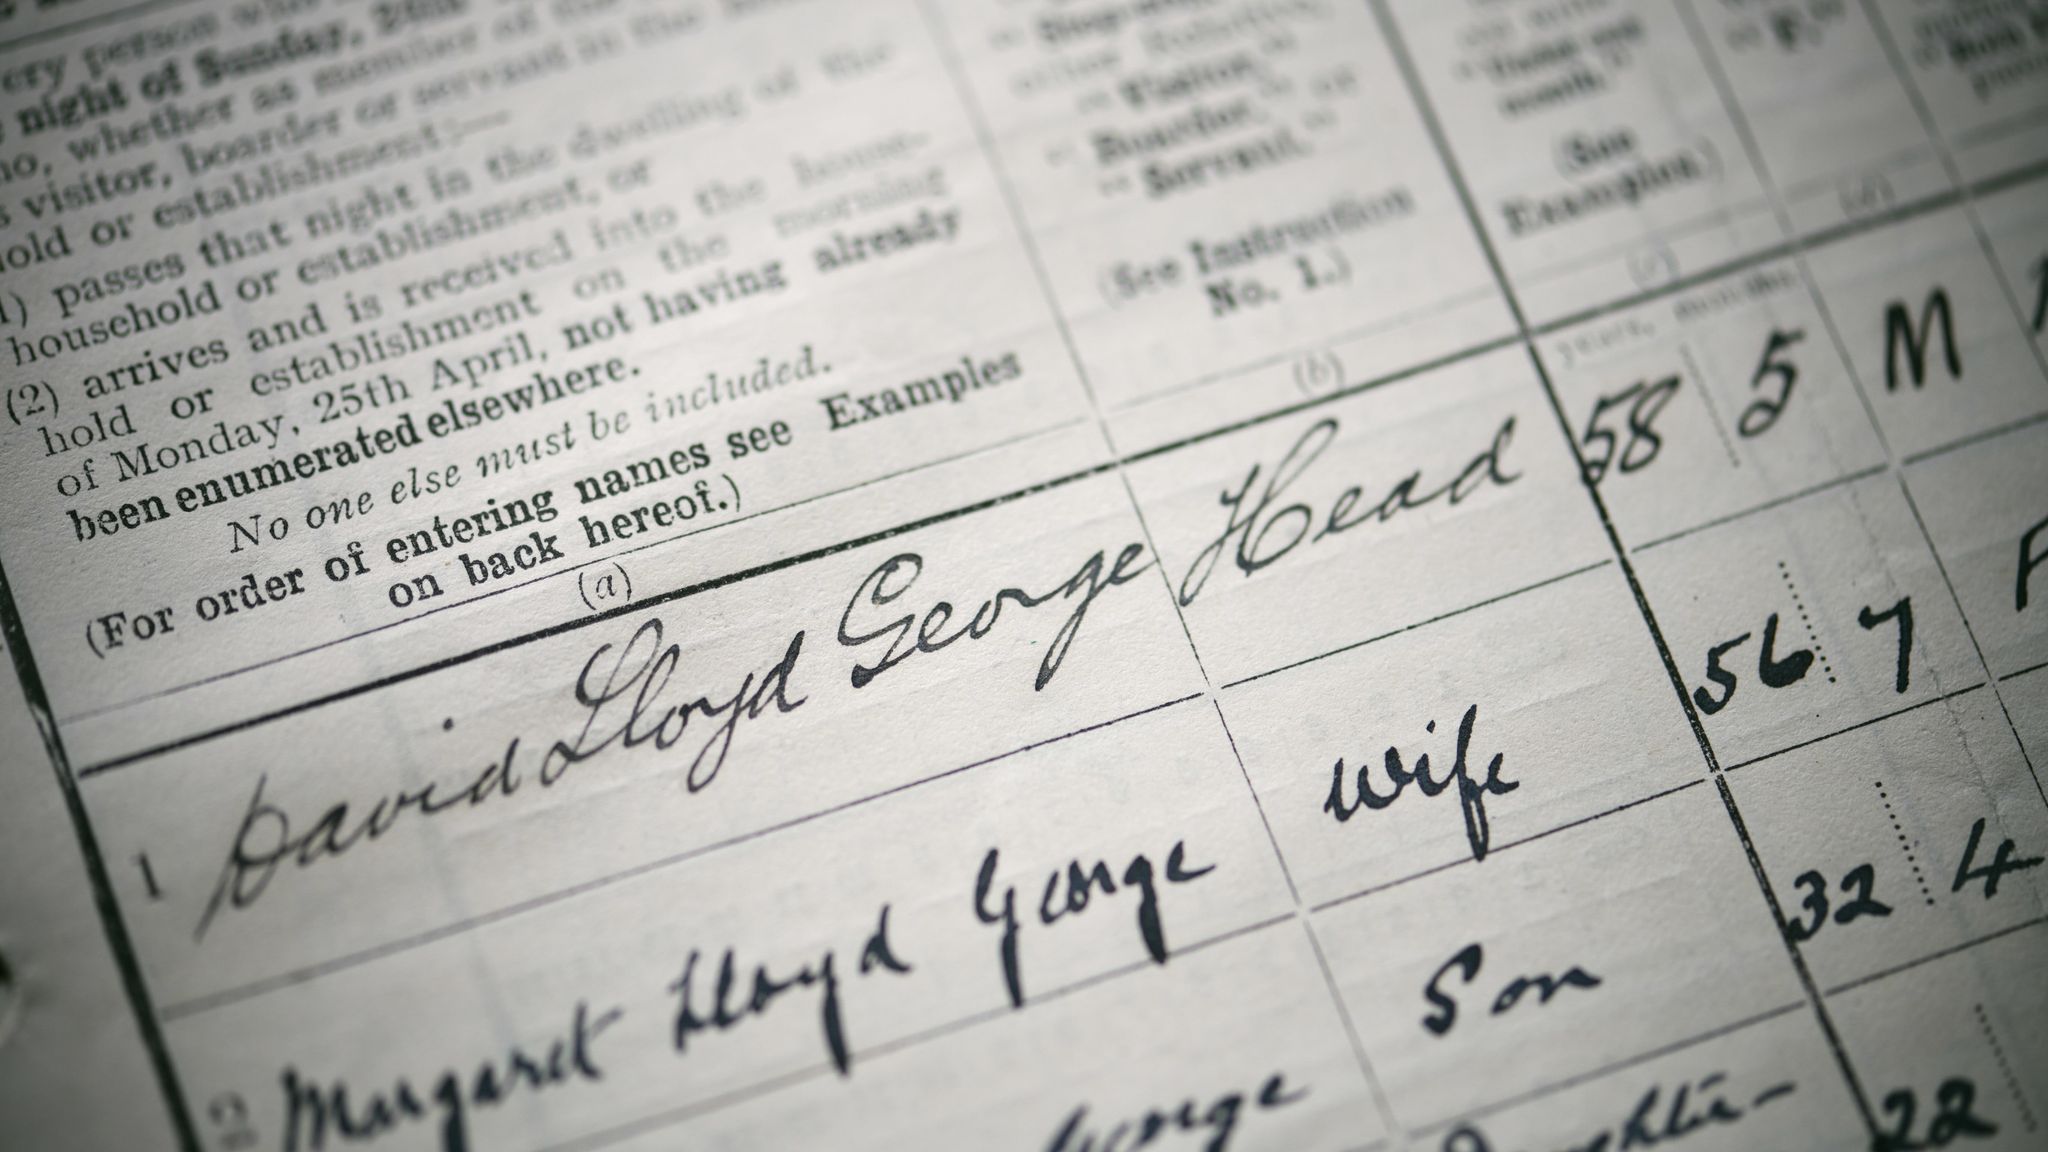 ery person who
night of Sunday, 24th
no, whether as member of the
s visitor, boarder or servant in the
old or establishment:—
1) passes that night in the dwelling of the
household or establishment, or
(2) arrives and is received into the house-
hold or establishment on the morning
of Monday, 25th April, not having already
been enumerated elsewhere.
No one else must be included.
(For order of entering names see Examples
on back hereof.)
(a)
"Visitor,"
"Boarder," or
"Servant."
(See Instruction
No. 1.)
(b)
"Under one
month."
(See
Examples.)
(c)
years, months
(d)
"F."
1 David Lloyd George Head 58 5 M
2 Margaret Lloyd George Wife 56 7 F
George Son 32 4
Daughter 22